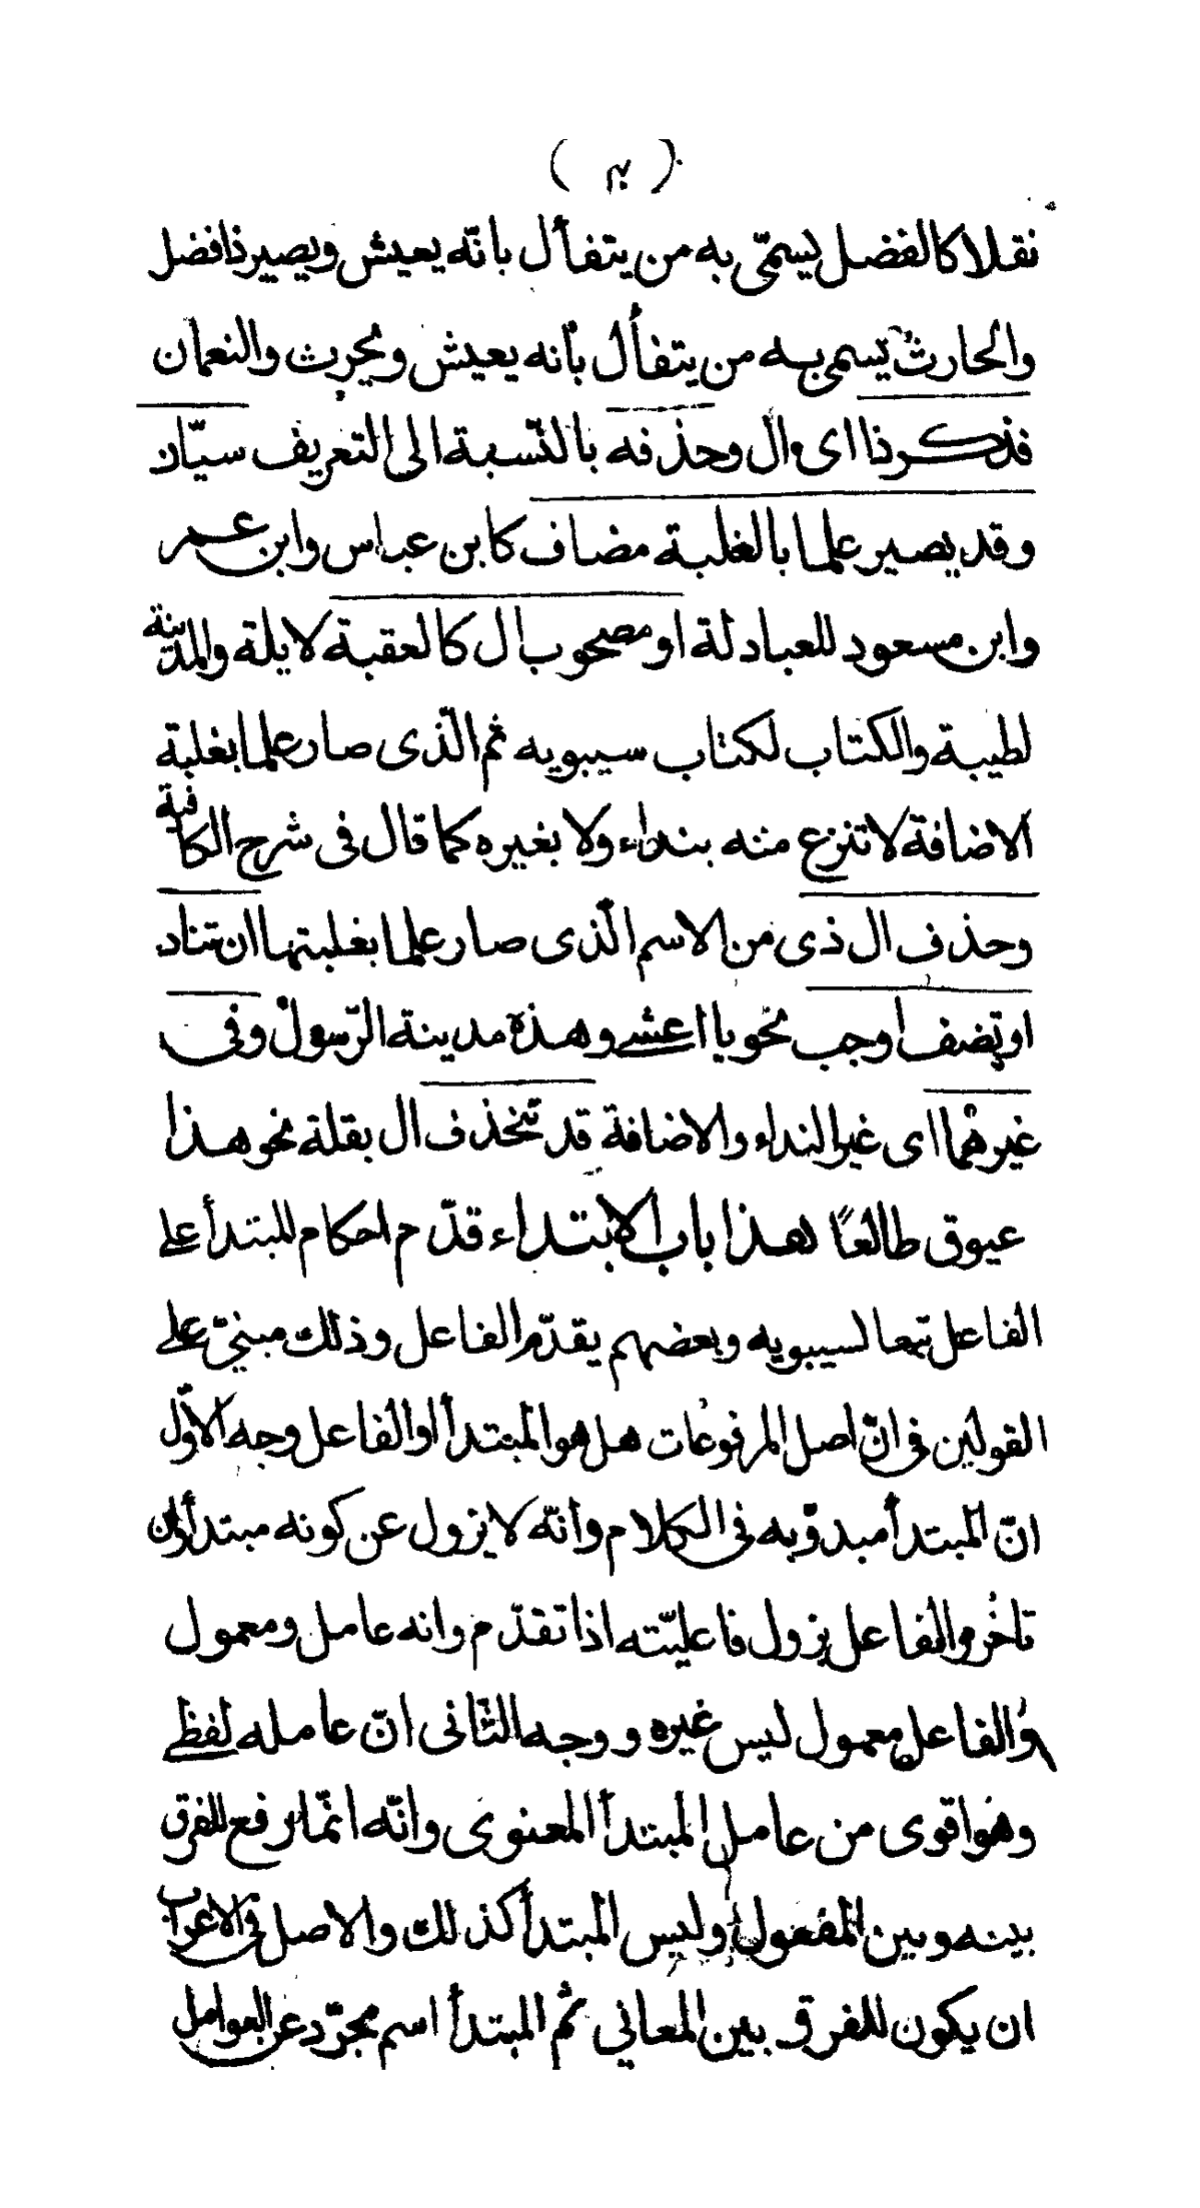 نقلا كالفضل يسمّى به من يتفأل بانّه يعيش ويصير ذا فضل
والحارث يسمى به من يتفأل بأنه يعيش ويحرث والنعمان
فذكر ذا اى ال وحذفه بالنّسبة الى التعريف سيّان
وقد يصير علما بالغلبة مضاف كابن عباس وابن عمر
وابن مسعود للعبادلة او مصحوب ال كالعقبة لايلة والمدينة
لطيبة والكتاب لكتاب سيبويه ثم الّذى صار علما بغلبة
الاضافة لا تنزع منه بنداء ولا بغيره كما قال فى شرح الكافية
وحذف ال ذى من الاسم الّذى صار علما بغلبتها ان تناد
او تضف اوجب نحو يا اعشى وهذه مدينة الرّسول وفى
غيرهما اى غير النداء والاضافة قد تنحذف ال بقلة نحو هذا
عيوق طالعًا هذا باب الابتداء قدّم احكام المبتدأ على
الفاعل تبعا لسيبويه وبعضهم يقدّم الفاعل وذلك مبنىّ على
القولين فى انّ اصل المرفوعات هل هو المبتدأ او الفاعل وجه الاوّل
انّ المبتدأ مبدوّ به فى الكلام وانّه لا يزول عن كونه مبتدأ وان
تاخّر والفاعل يزول فاعليّته اذا تقدّم وانه عامل ومعمول
والفاعل معمول ليس غيره ووجه الثّانى انّ عامله لفظى
وهو اقوى من عامل المبتدأ المعنوى وانّه انّما رفع للفرق
بينه وبين المفعول وليس المبتدأ كذلك والاصل فى الاعراب
ان يكون للفرق بين المعانى ثم المبتدأ اسم مجرّد عن العوامل